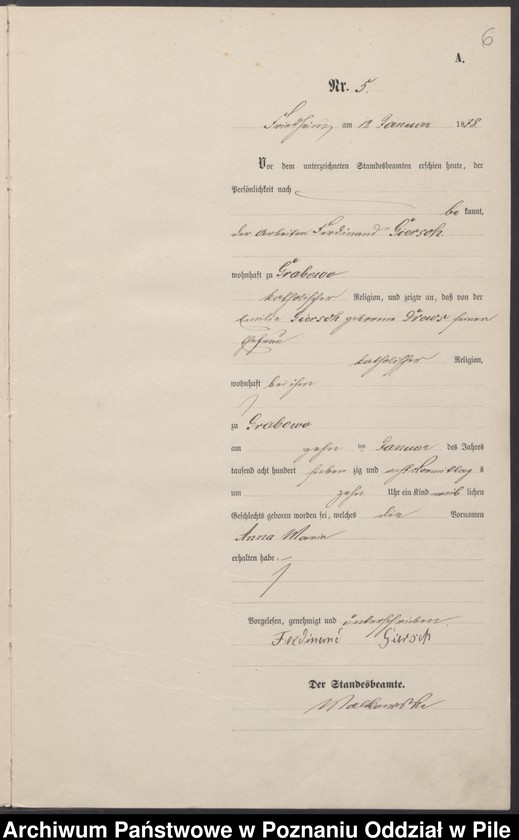 6
A.
Nr. 5.
Friedheim, am 12 Januar 1888.
Vor dem unterzeichneten Standesbeamten erschien heute, der
Persönlichkeit nach
be kannt,
der Arbeiter Ferdinand Giersch
wohnhaft zu Grabowo
katholischer Religion, und zeigte an, daß von der
Emilie Giersch geborene Drews seiner
Ehefrau
katholischer Religion,
wohnhaft bei ihm
zu Grabowo
am zehn ten Januar des Jahres
tausend acht hundert sieben zig und acht Vormittag s
um zehn Uhr ein Kind weib lichen
Geschlechts geboren worden sei, welches die Vornamen
Anna Maria
erhalten habe.
Vorgelesen, genehmigt und unterschrieben.
Ferdinand Giersch
Der Standesbeamte.
Archiwum Państwowe w Poznaniu Oddział w Pile